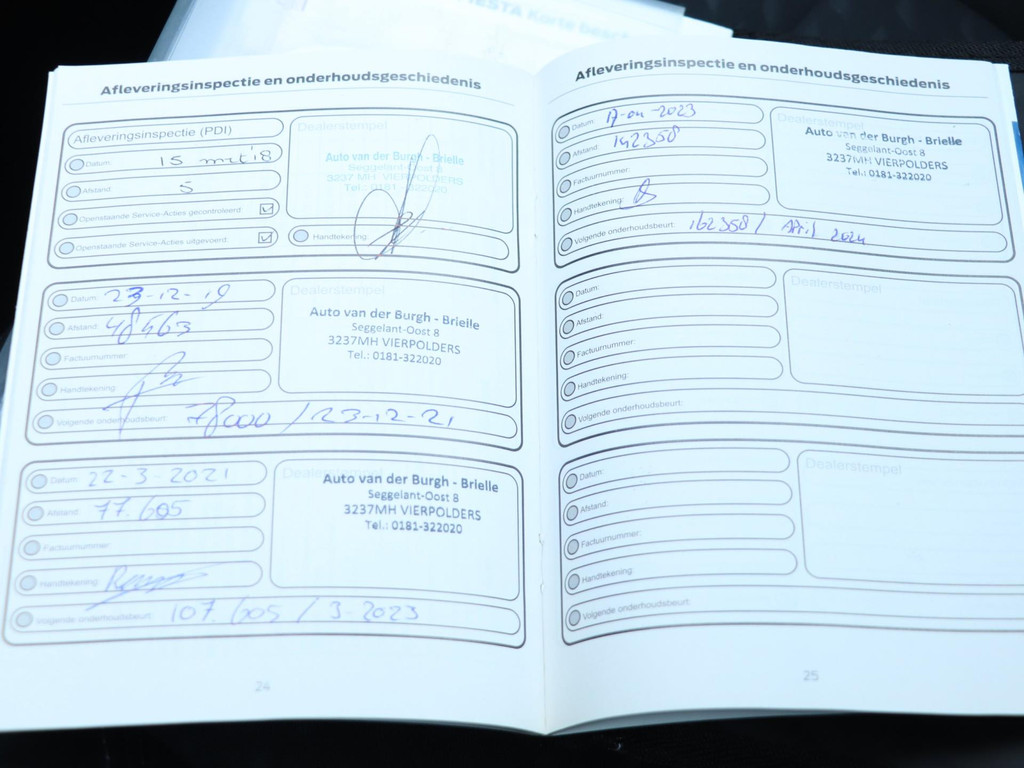 Afleveringsinspectie en onderhoudsgeschiedenis
Afleveringsinspectie (PDI)
Datum: 15 mrt '18
Afstand: 5
Openstaande Service-Acties gecontroleerd:
Openstaande Service-Acties uitgevoerd:
Dealerstempel
Auto van der Burgh - Brielle
Seggelant-Oost 8
3237 MH VIERPOLDERS
Tel.: 0181 - 322020
Handtekening:
Datum: 23-12-19
Afstand: 48463
Factuurnummer:
Handtekening:
Volgende onderhoudsbeurt: 78000 / 23-12-21
Dealerstempel
Auto van der Burgh - Brielle
Seggelant-Oost 8
3237MH VIERPOLDERS
Tel.: 0181-322020
Datum: 22-3-2021
Afstand: 77.605
Factuurnummer:
Handtekening:
Volgende onderhoudsbeurt: 107.605 / 3-2023
Dealerstempel
Auto van der Burgh - Brielle
Seggelant-Oost 8
3237MH VIERPOLDERS
Tel.: 0181-322020
24
Afleveringsinspectie en onderhoudsgeschiedenis
Datum: 17-04-2023
Afstand: 142358
Factuurnummer:
Handtekening:
Volgende onderhoudsbeurt: 162358 / April 2024
Dealerstempel
Auto van der Burgh - Brielle
Seggelant-Oost 8
3237MH VIERPOLDERS
Tel.: 0181-322020
Datum:
Afstand:
Factuurnummer:
Handtekening:
Volgende onderhoudsbeurt:
Dealerstempel
Datum:
Afstand:
Factuurnummer:
Handtekening:
Volgende onderhoudsbeurt:
Dealerstempel
25